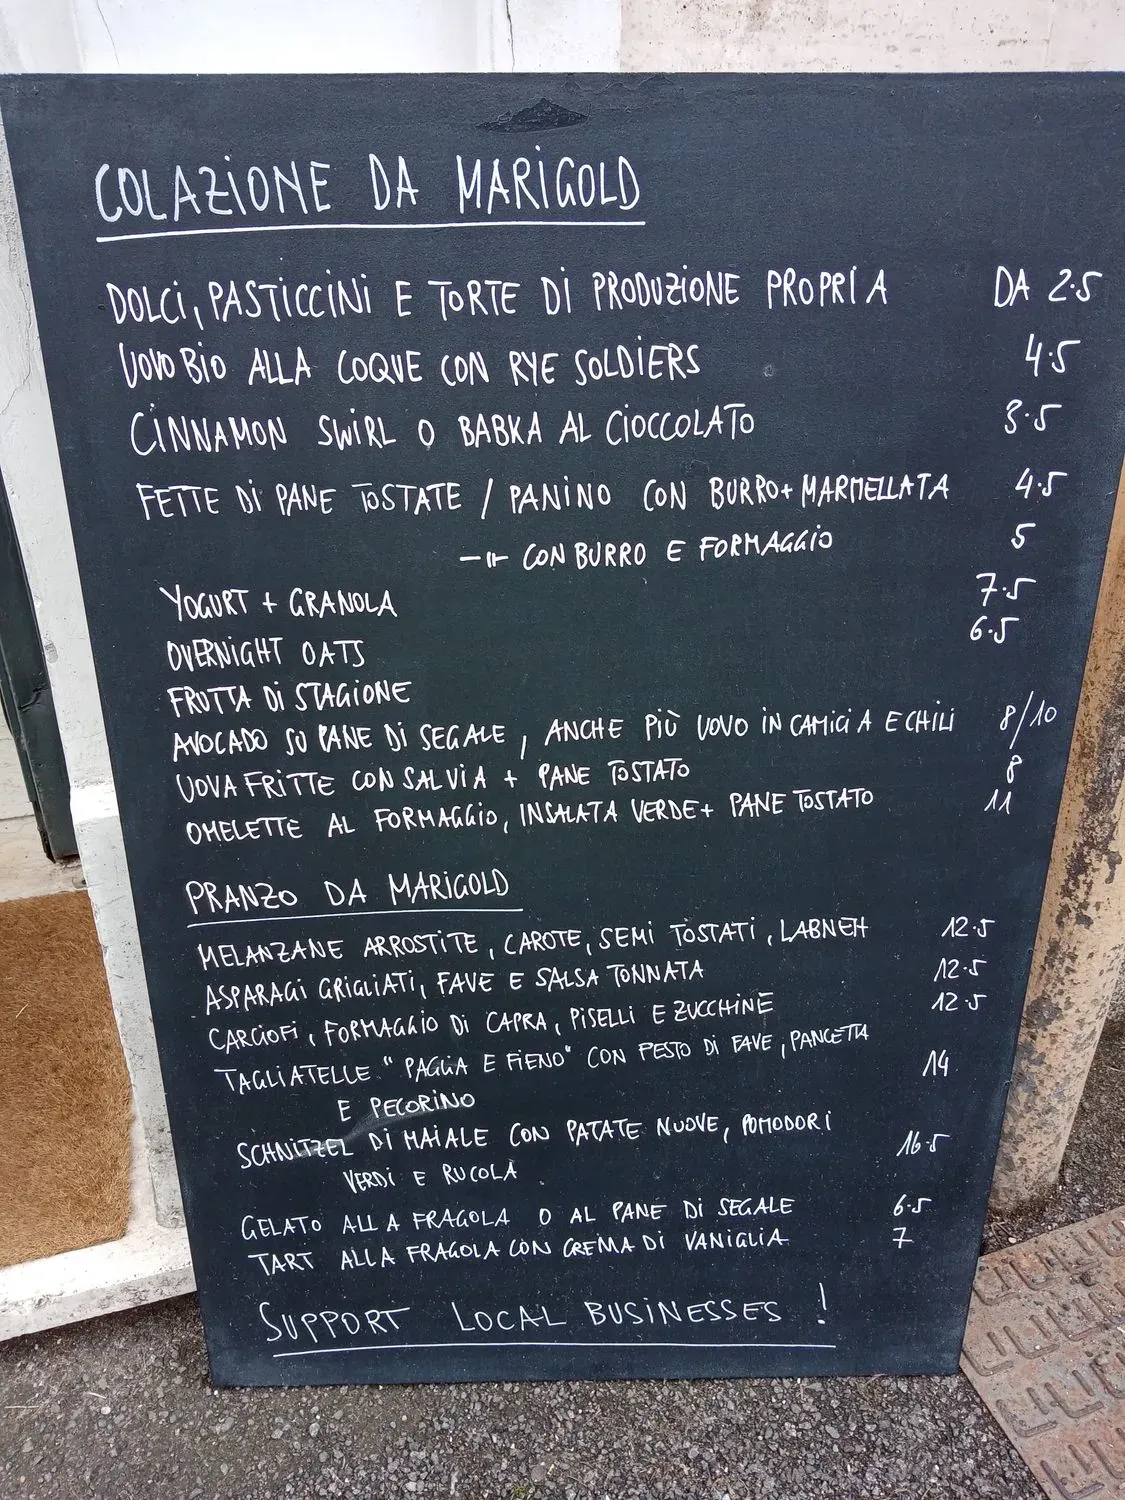 COLAZIONE DA MARIGOLD
DOLCI, PASTICCINI E TORTE DI PRODUZIONE PROPRIA DA 2.5
UOVO BIO ALLA COQUE CON RYE SOLDIERS 4.5
CINNAMON SWIRL O BABKA AL CIOCCOLATO 3.5
FETTE DI PANE TOSTATE / PANINO CON BURRO + MARMELLATA 4.5
-11- CON BURRO E FORMAGGIO 5
YOGURT + GRANOLA 7.5
OVERNIGHT OATS 6.5
FRUTTA DI STAGIONE
AVOCADO SU PANE DI SEGALE, ANCHE PIÙ UOVO IN CAMICIA E CHILI 8/10
UOVA FRITTE CON SALVIA + PANE TOSTATO 8
OMELETTE AL FORMAGGIO, INSALATA VERDE + PANE TOSTATO 11
PRANZO DA MARIGOLD
MELANZANE ARROSTITE, CAROTE, SEMI TOSTATI, LABNEH 12.5
ASPARAGI GRIGLIATI, FAVE E SALSA TONNATA 12.5
CARCIOFI, FORMAGGIO DI CAPRA, PISELLI E ZUCCHINE 12.5
TAGLIATELLE "PAGLIA E FIENO" CON PESTO DI FAVE, PANCETTA
E PECORINO 14
SCHNITZEL DI MAIALE CON PATATE NUOVE, POMODORI
VERDI E RUCOLA 16.5
GELATO ALLA FRAGOLA O AL PANE DI SEGALE 6.5
TART ALLA FRAGOLA CON CREMA DI VANIGLIA 7
SUPPORT LOCAL BUSINESSES!